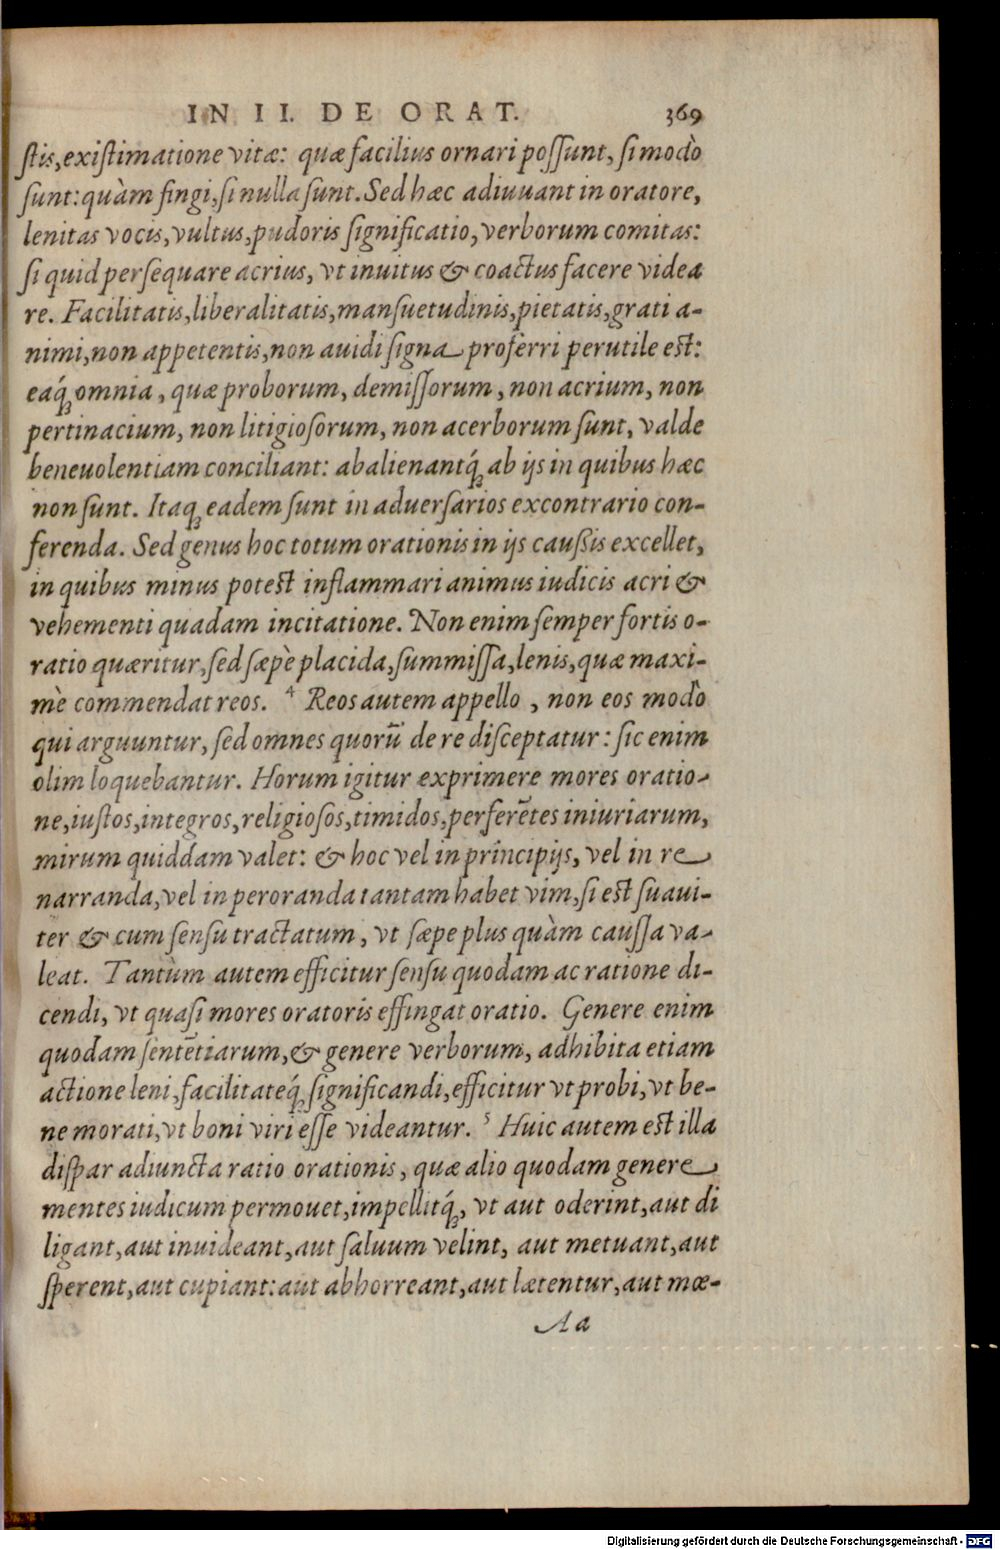 IN II. DE ORAT. 369
ſtis, exiſtimatione vitæ: quæ facilius ornari poſſunt, ſi modò
ſunt: quàm fingi, ſi nulla ſunt. Sed hæc adiuuant in oratore,
lenitas vocis, vultus, pudoris ſignificatio, verborum comitas:
ſi quid perſequare acrius, vt inuitus & coactus facere videa
re. Facilitatis, liberalitatis, manſuetudinis, pietatis, grati a-
nimi, non appetentis, non auidi ſigna proferri perutile est:
eaq́ꝫ omnia, quæ proborum, demiſſorum, non acrium, non
pertinacium, non litigioſorum, non acerborum ſunt, valde
beneuolentiam conciliant: abalienantq́ꝫ ab ijs in quibus hæc
non ſunt. Itaqꝫ eadem ſunt in aduerſarios ex contrario con-
ferenda. Sed genus hoc totum orationis in ijs cauſsis excellet,
in quibus minus potest inflammari animus iudicis acri &
vehementi quadam incitatione. Non enim ſemper fortis o-
ratio quæritur, ſed ſæpè placida, ſummiſſa, lenis, quæ maxi-
mè commendat reos. 4 Reos autem appello, non eos modò
qui arguuntur, ſed omnes quorū de re diſceptatur: ſic enim
olim loquebantur. Horum igitur exprimere mores oratio-
ne, iuſtos, integros, religioſos, timidos, perferētes iniuriarum,
mirum quiddam valet: & hoc vel in principijs, vel in re
narranda, vel in peroranda tantam habet vim, ſi est ſuaui-
ter & cum ſenſu tractatum, vt ſæpe plus quàm cauſſa va-
leat. Tantùm autem efficitur ſenſu quodam ac ratione di-
cendi, vt quaſi mores oratoris effingat oratio. Genere enim
quodam ſentētiarum, & genere verborum, adhibita etiam
actione leni, facilitateq́ꝫ ſignificandi, efficitur vt probi, vt be-
ne morati, vt boni viri eſſe videantur. 5 Huic autem est illa
diſpar adiuncta ratio orationis, quæ alio quodam genere
mentes iudicum permouet, impellitq́ꝫ, vt aut oderint, aut di
ligant, aut inuideant, aut ſaluum velint, aut metuant, aut
ſperent, aut cupiant: aut abhorreant, aut lætentur, aut mœ-
Aa
Digitalisierung gefördert durch die Deutsche Forschungsgemeinschaft - DFG